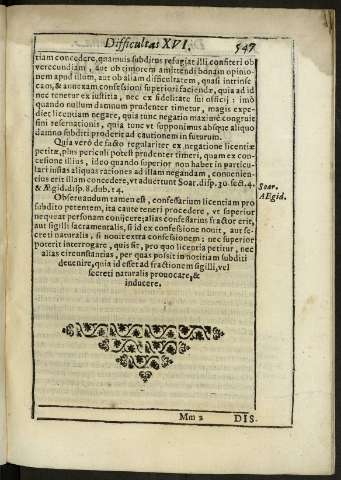 Difficultas XVI. 547
tiam concedere, quamuis subditus refugiat illi confiteri ob
verecundiam, aut ob timorem amittendi bonam opinio-
nem apud illum, aut ob aliam difficultatem, quasi intrinse
cam, & annexam confessioni superiori faciendæ, quia ad id
nec tenetur ex iustitia, nec ex fidelitate sui officij: imò
quando nullum damnum prudenter timetur, magis expe-
diet licentiam negare, quia tunc negatio maximè congruit
fini reseruationis, quia tunc vt supponimus absque aliquo
damno subditi proderit ad cautionem in futurum.
Quia verò de facto regulariter ex negatione licentiæ
petitæ, plus periculi potest prudenter timeri, quam ex con-
cesione illius, ideo quando superior non habet in particu-
lari iustas aliquas rationes ad illam negandam, conuenien-
tius erit illam concedere, vt aduertunt Soar. disp. 30. sect. 4.
& Ægid. disp. 8. dub. 14.
Soar.
AEgid.
Obseruandum tamen est, confessarium licentiam pro
subdito petentem, ita caute teneri procedere, vt superior
nequeat personam conijcere; alias confessarius fractor erit,
aut sigilli sacramentalis, si id ex confessione nouit, aut se-
creti naturalis, si nouit extra confessionem: nec superior
poterit interrogare, quis sit, pro quo licentia petitur, nec
alias circunstantias, per quas possit in notitiam subditi
deuenire, quia id esset ad fractionem sigilli, vel
secreti naturalis prouocare, &
inducere.
Mm 2 DIS-